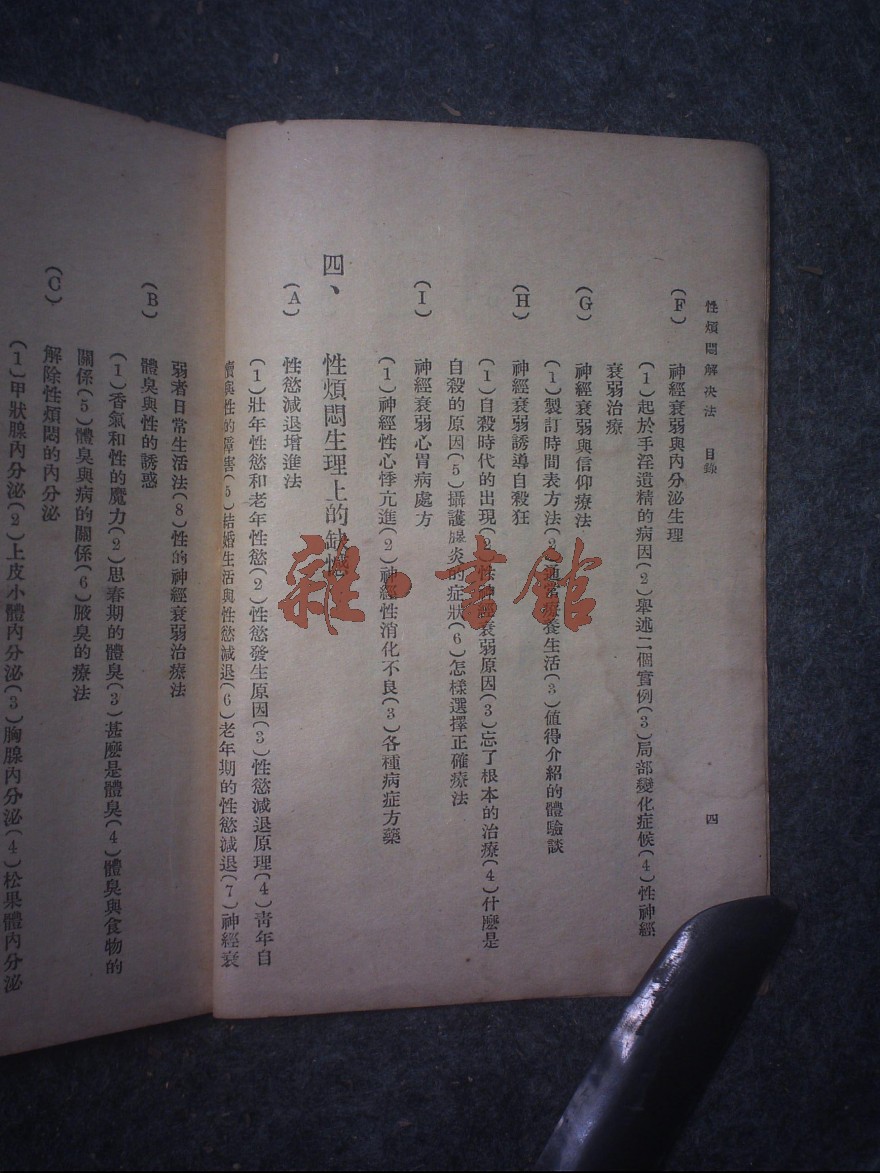 性煩悶解决法　目錄
四
(F)　神經衰弱與內分泌生理
(1)起於手淫遺精的病因(2)舉述二個實例(3)局部變化症候(4)性神經
衰弱治療
(G)　神經衰弱與信仰療法
(1)製訂時間表方法(2)通常療養生活(3)値得介紹的體驗談
(H)　神經衰弱誘導自殺狂
(1)自殺時代的出現(2)性神經衰弱原因(3)忘了根本的治療(4)什麽是
自殺的原因(5)攝護腺炎的症狀(6)怎樣選擇正確療法
(I)　神經衰弱心胃病處方
(1)神經性心悸亢進(2)神經性消化不良(3)各種病症方藥
四、　性煩悶生理上的缺憾
(A)　性慾減退增進法
(1)壯年性慾和老年性慾(2)性慾發生原因(3)性慾減退原理(4)靑年自
瀆與性的障害(5)結婚生活與性慾減退(6)老年期的性慾減退(7)神經衰
弱者日常生活法(8)性的神經衰弱治療法
(B)　體臭與性的誘惑
(1)香氣和性的魔力(2)思春期的體臭(3)甚麽是體臭(4)體臭與食物的
關係(5)體臭與病的關係(6)腋臭的療法
(C)　解除性煩悶的內分泌
(1)甲狀腺內分泌(2)上皮小體內分泌(3)胸腺內分泌(4)松果體內分泌
雜·書館